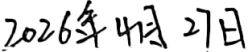 2026年4月27日